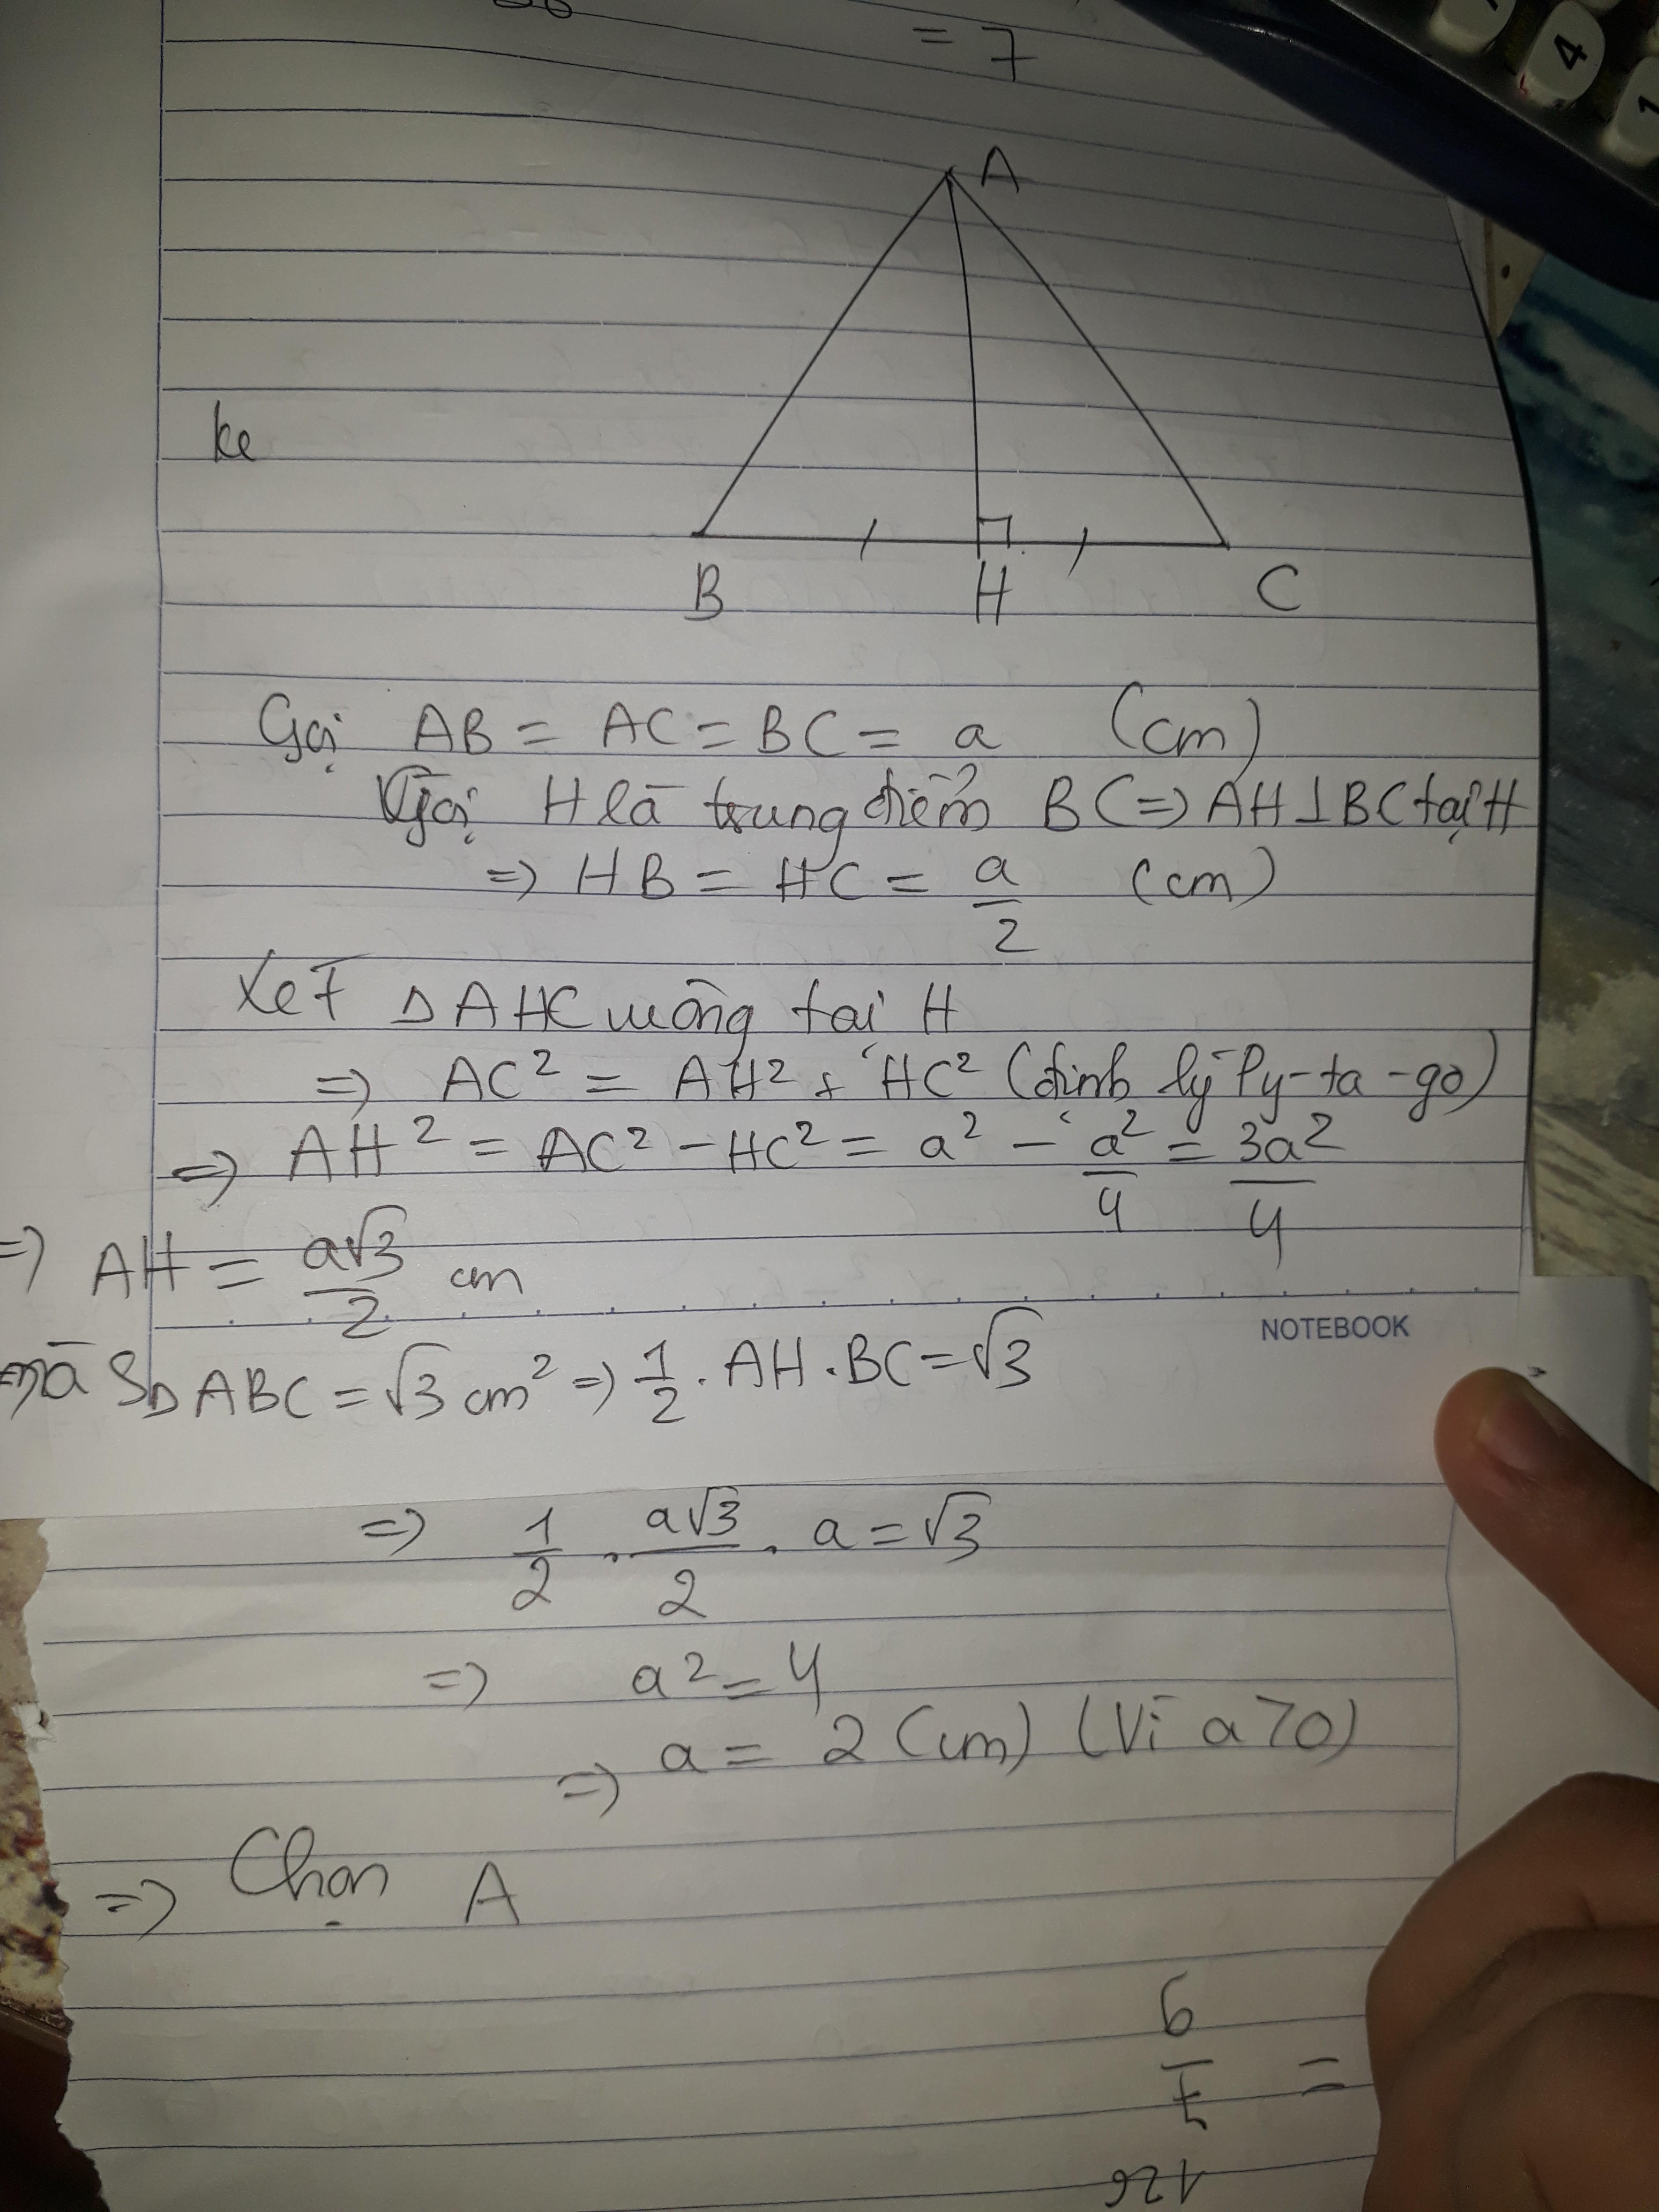 = 7
4
1
A
ke
B H C
Gọi AB = AC = BC = a (cm)
Gọi H là trung điểm BC => AH ⊥ BC tại H
=> HB = HC = a/2 (cm)
Xét Δ AHC vuông tại H
=> AC² = AH² + HC² (định lý Py-ta-go)
=> AH² = AC² - HC² = a² - a²/4 = 3a²/4
=> AH = a√3/2 cm
NOTEBOOK
mà SΔABC = √3 cm² => 1/2 . AH . BC = √3
=> 1/2 . a√3/2 . a = √3
=> a² = 4
=> a = 2 (cm) (Vì a > 0)
=> Chọn A
126